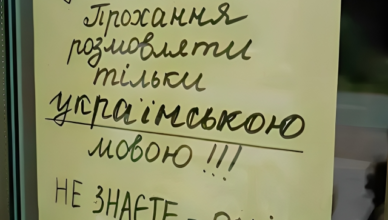 Прохання
розмовляти
тільки
українською
мовою !!!
НЕ ЗНАЄТЕ -